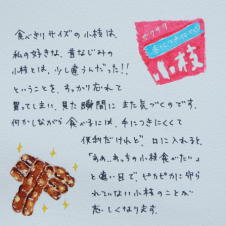 サクサク
手につきにくい
小枝
食べきりサイズの小枝は、
私の好きな、昔なじみの
小枝とは、少し違うんだった!!
ということを、すっかり忘れて
買ってしまい、見た瞬間に また気づくのです。
何かしながら 食べるには、手につきにくくて
便利だけれど、口に入れると、
「あぁ…あっちの小枝食べたい」
と遠い目で、ピカピカに守ら
れていない小枝のことが
恋しくなります。